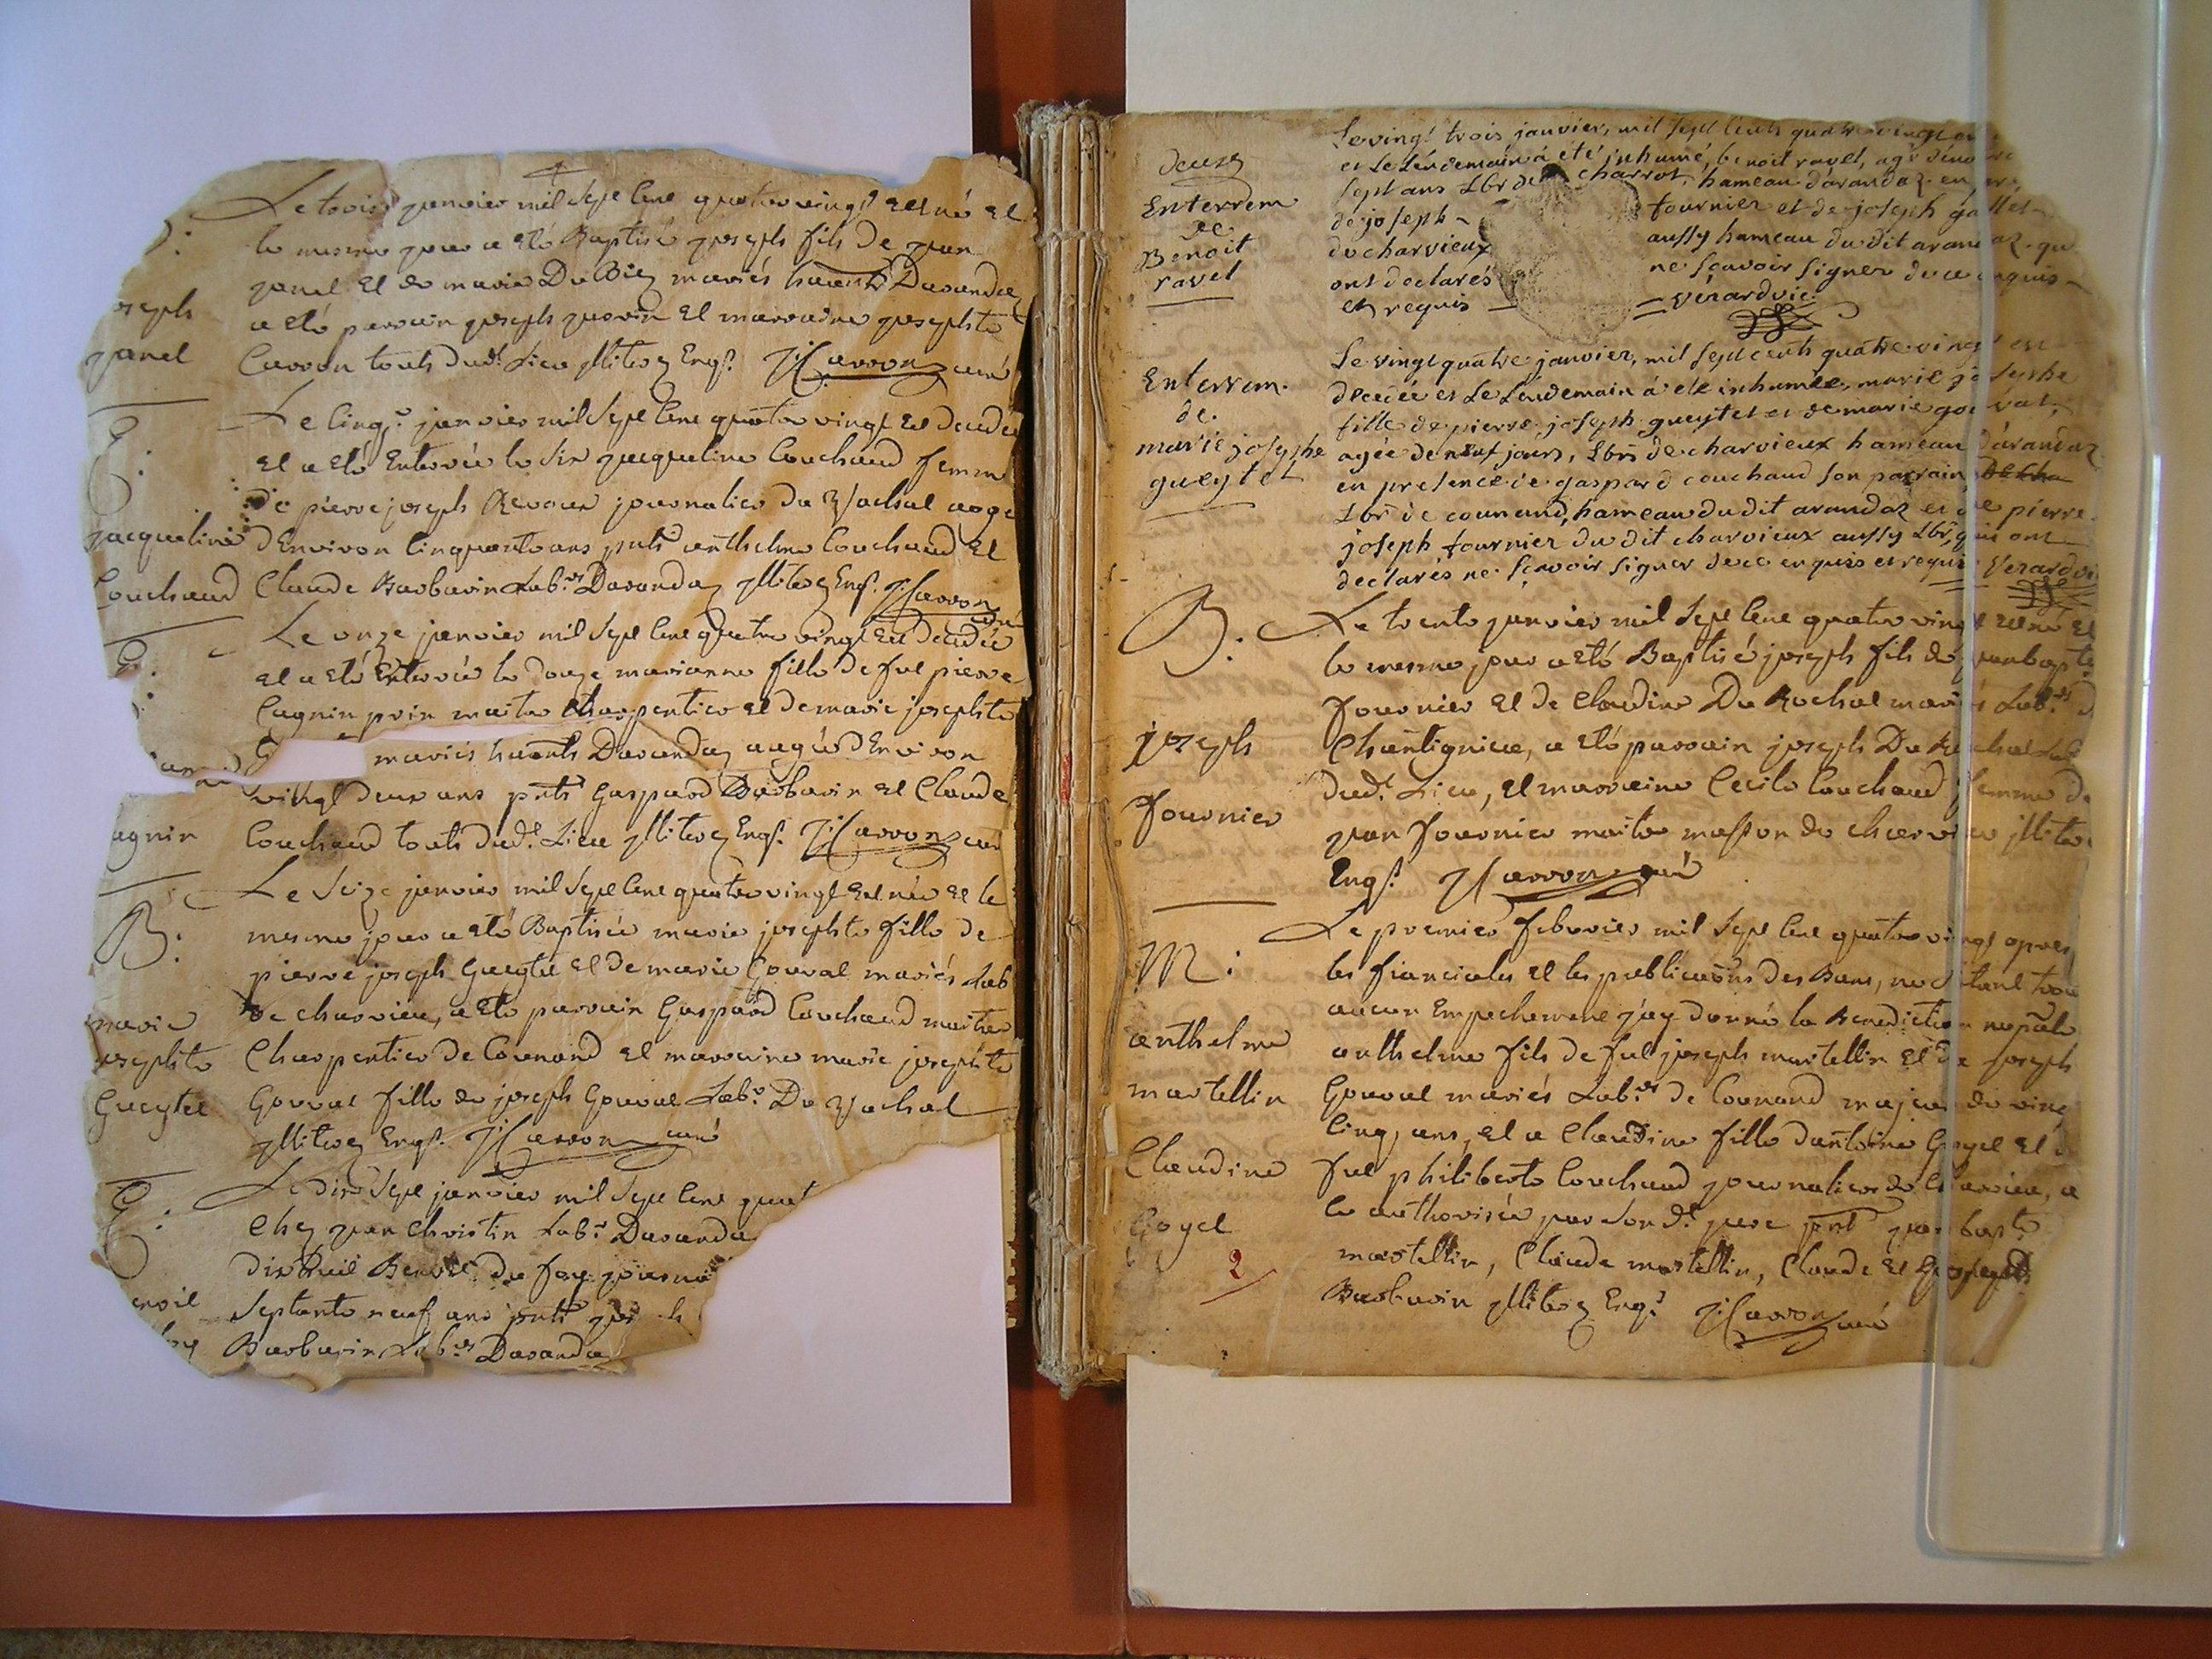 Le trois janvier mil sept cent quatre vingt est né et
le mesme jour a eté Baptisé joseph fils de jean
janel et de marie Du Biez mariés habants Darandaz
a eté parrain joseph et marraine josephte
Carron touts dud.t Lieu illiterez Enq.s Carron curé
joseph
janel
Le cinq.e janvier mil sept cent quatre vingt est decedée
et a eté Enterrée le six jacqueline Couchaud femme
de pierre joseph journalier du aagé
d'Environ cinquante ans pnts anthelme Couchaud et
Claude Barbarin Lab.rs Darandaz illiterez Enq.s Carron curé
E:
jacqueline
Couchaud
Le onze janvier mil sept cent quatre vingt est decedée
et a eté Enterrée le douze marianne fille de fut pierre
Cagnin prin maitre Charpentier et de marie josephte
mariés habants Darandaz aagée d'Environ
vingt deux ans pnts Gaspard Barbarin et Claude
Couchaud touts dud.t Lieu illiterez Enq.s Carron curé
E:
agnin
Le seize janvier mil sept cent quatre vingt est née et le
mesme jour a eté Baptisée marie josephte fille de
pierre joseph Gueytet et de marie Gouval mariés Lab
de charvieu, a eté parrain Gaspard Couchaud maitre
Charpentier de Counand et marraine marie josephte
Gouval fille de joseph Gouval Lab.r Du
illiterez Enq.s Carron curé
B:
marie
josephte
Gueytet
Le dix sept janvier mil sept cent quat
Chez jean Christin Lab.r Daranda
dix huit Benoit du fay journa
septante neuf ans pnts
Barbarin Lab.rs Darandaz
E:
enoit
deuz
Enterrem
de
Benoit
ravel
Le vingt trois janvier, mil sept cents quatre vingt
et Le Lendemain à été inhumé, benoit ravel, agé d'environ
sept ans Lbr de charrot, hameau d'arandaz. en
de joseph fournier et de joseph gallet
de charvieux aussy hameau du dit arandaz. qu
ont declarés ne sçavoir signer de ce enquis
et requis verard vic
Enterrem.
de.
marie josephe
gueytet
Le vingt quatre janvier, mil sept cents quatre vingt est
decedée et Le Lendemain à eté inhumée, marie josephe
fille de pierre joseph gueytet et de marie gouval,
agée de neuf jours, Lbrs de charvieux hameau d'arandaz
en presence de gaspard couchaud son parrain,
Lbr de counand, hameau du dit arandaz et de pierre
joseph fournier du dit charvieux aussy Lbr, qui ont
declarés ne sçavoir signer de ce enquis et requis Verard vi
B:
joseph
fournier
Le trente janvier mil sept cent quatre vingt est né et
le mesme jour a eté Baptisé joseph fils de jean bapte
fournier et de Claudine Du Rochat mariés Lab.rs d
Chantignieu, a eté parrain joseph Du Rochat Lab
dud.t Lieu, et marraine Cecile Couchaud femme de
jean fournier maitre masson de charvieu illiterez
Enq.s Carron curé
M:
anthelme
martellin
Claudine
Goyet
Le premier febvrier mil sept cent quatre vingt apres
les fianciales et les publications des Bans, ne s'etant trou
aucun Empechement j'ay donné la Benediction nuptale
anthelme fils de fut joseph martellin et de joseph
Gouval mariés Lab.rs de Counand majeur de vingt
cinq ans, et a Claudine fille d'antoine Goyet et d
fut philiberte Couchaud journaliers de Charvieu, a
ce authorisée par son d.t pere pnt jean bapt.e
martellin, Claude martellin, Claude et Gaspard
Barbarin illiterez Enq.s Carron curé
2